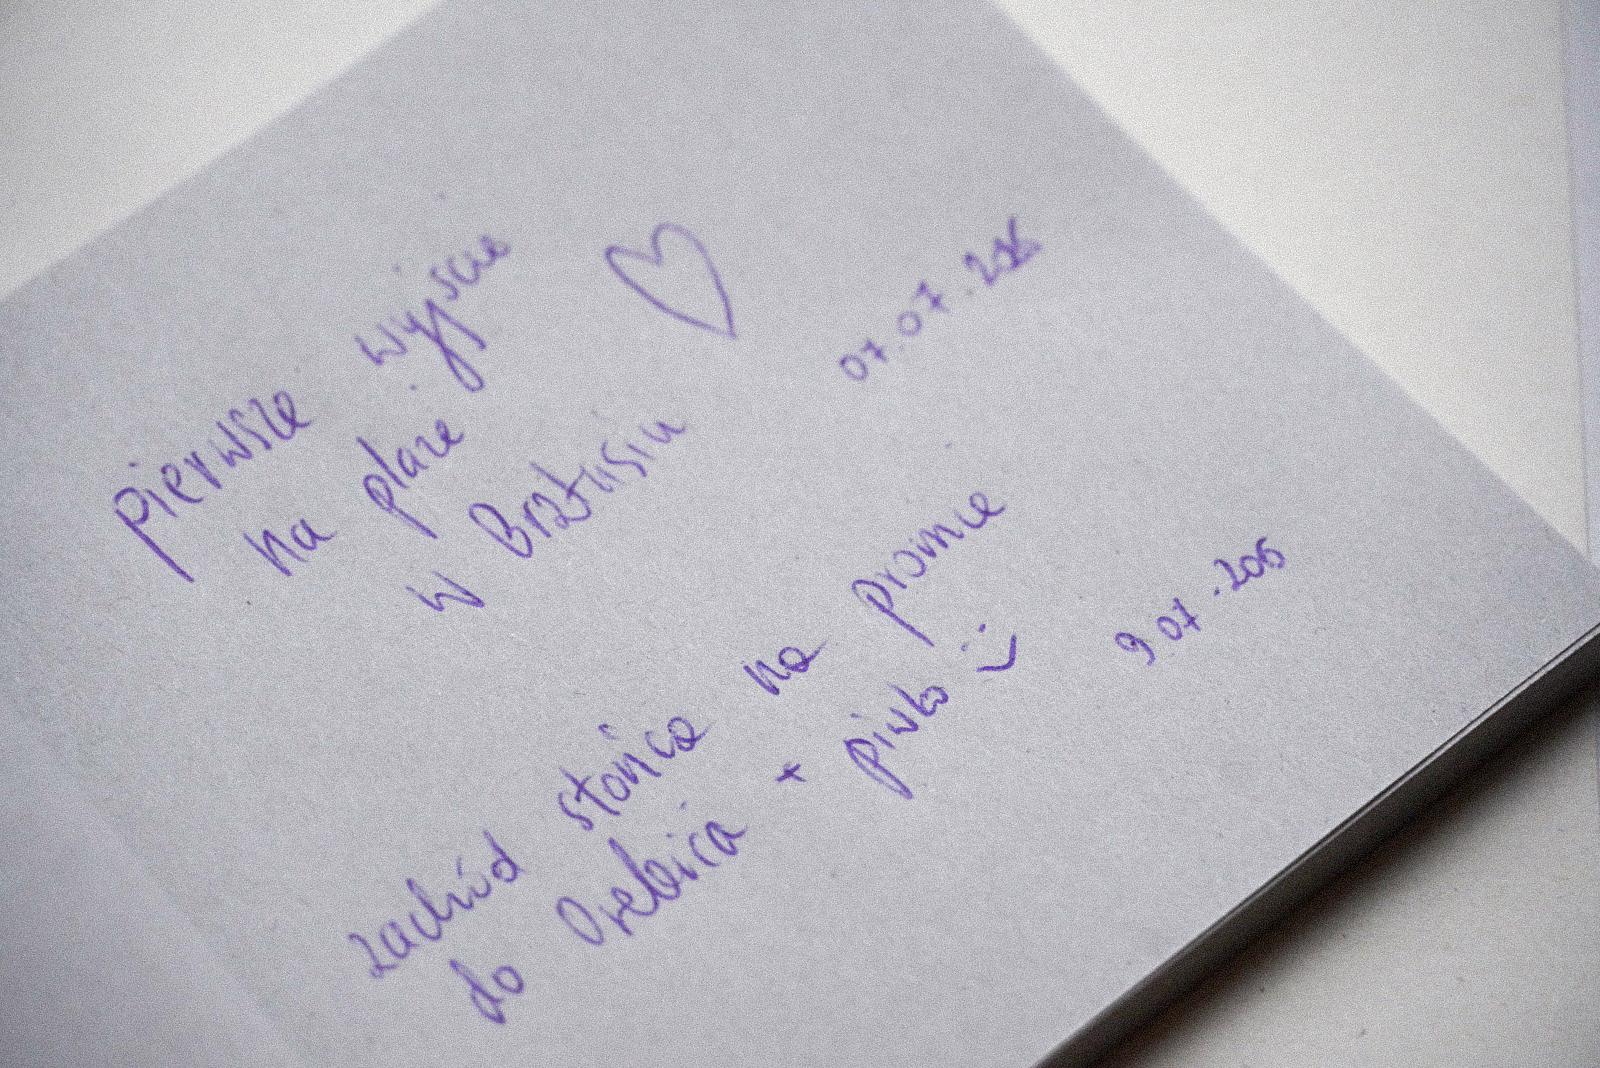 pierwsze wyjście
na plażę
w Brzusiu
07.07.2015
zachód słońca na promie
do Orebića + piwko :)
9.07.2015